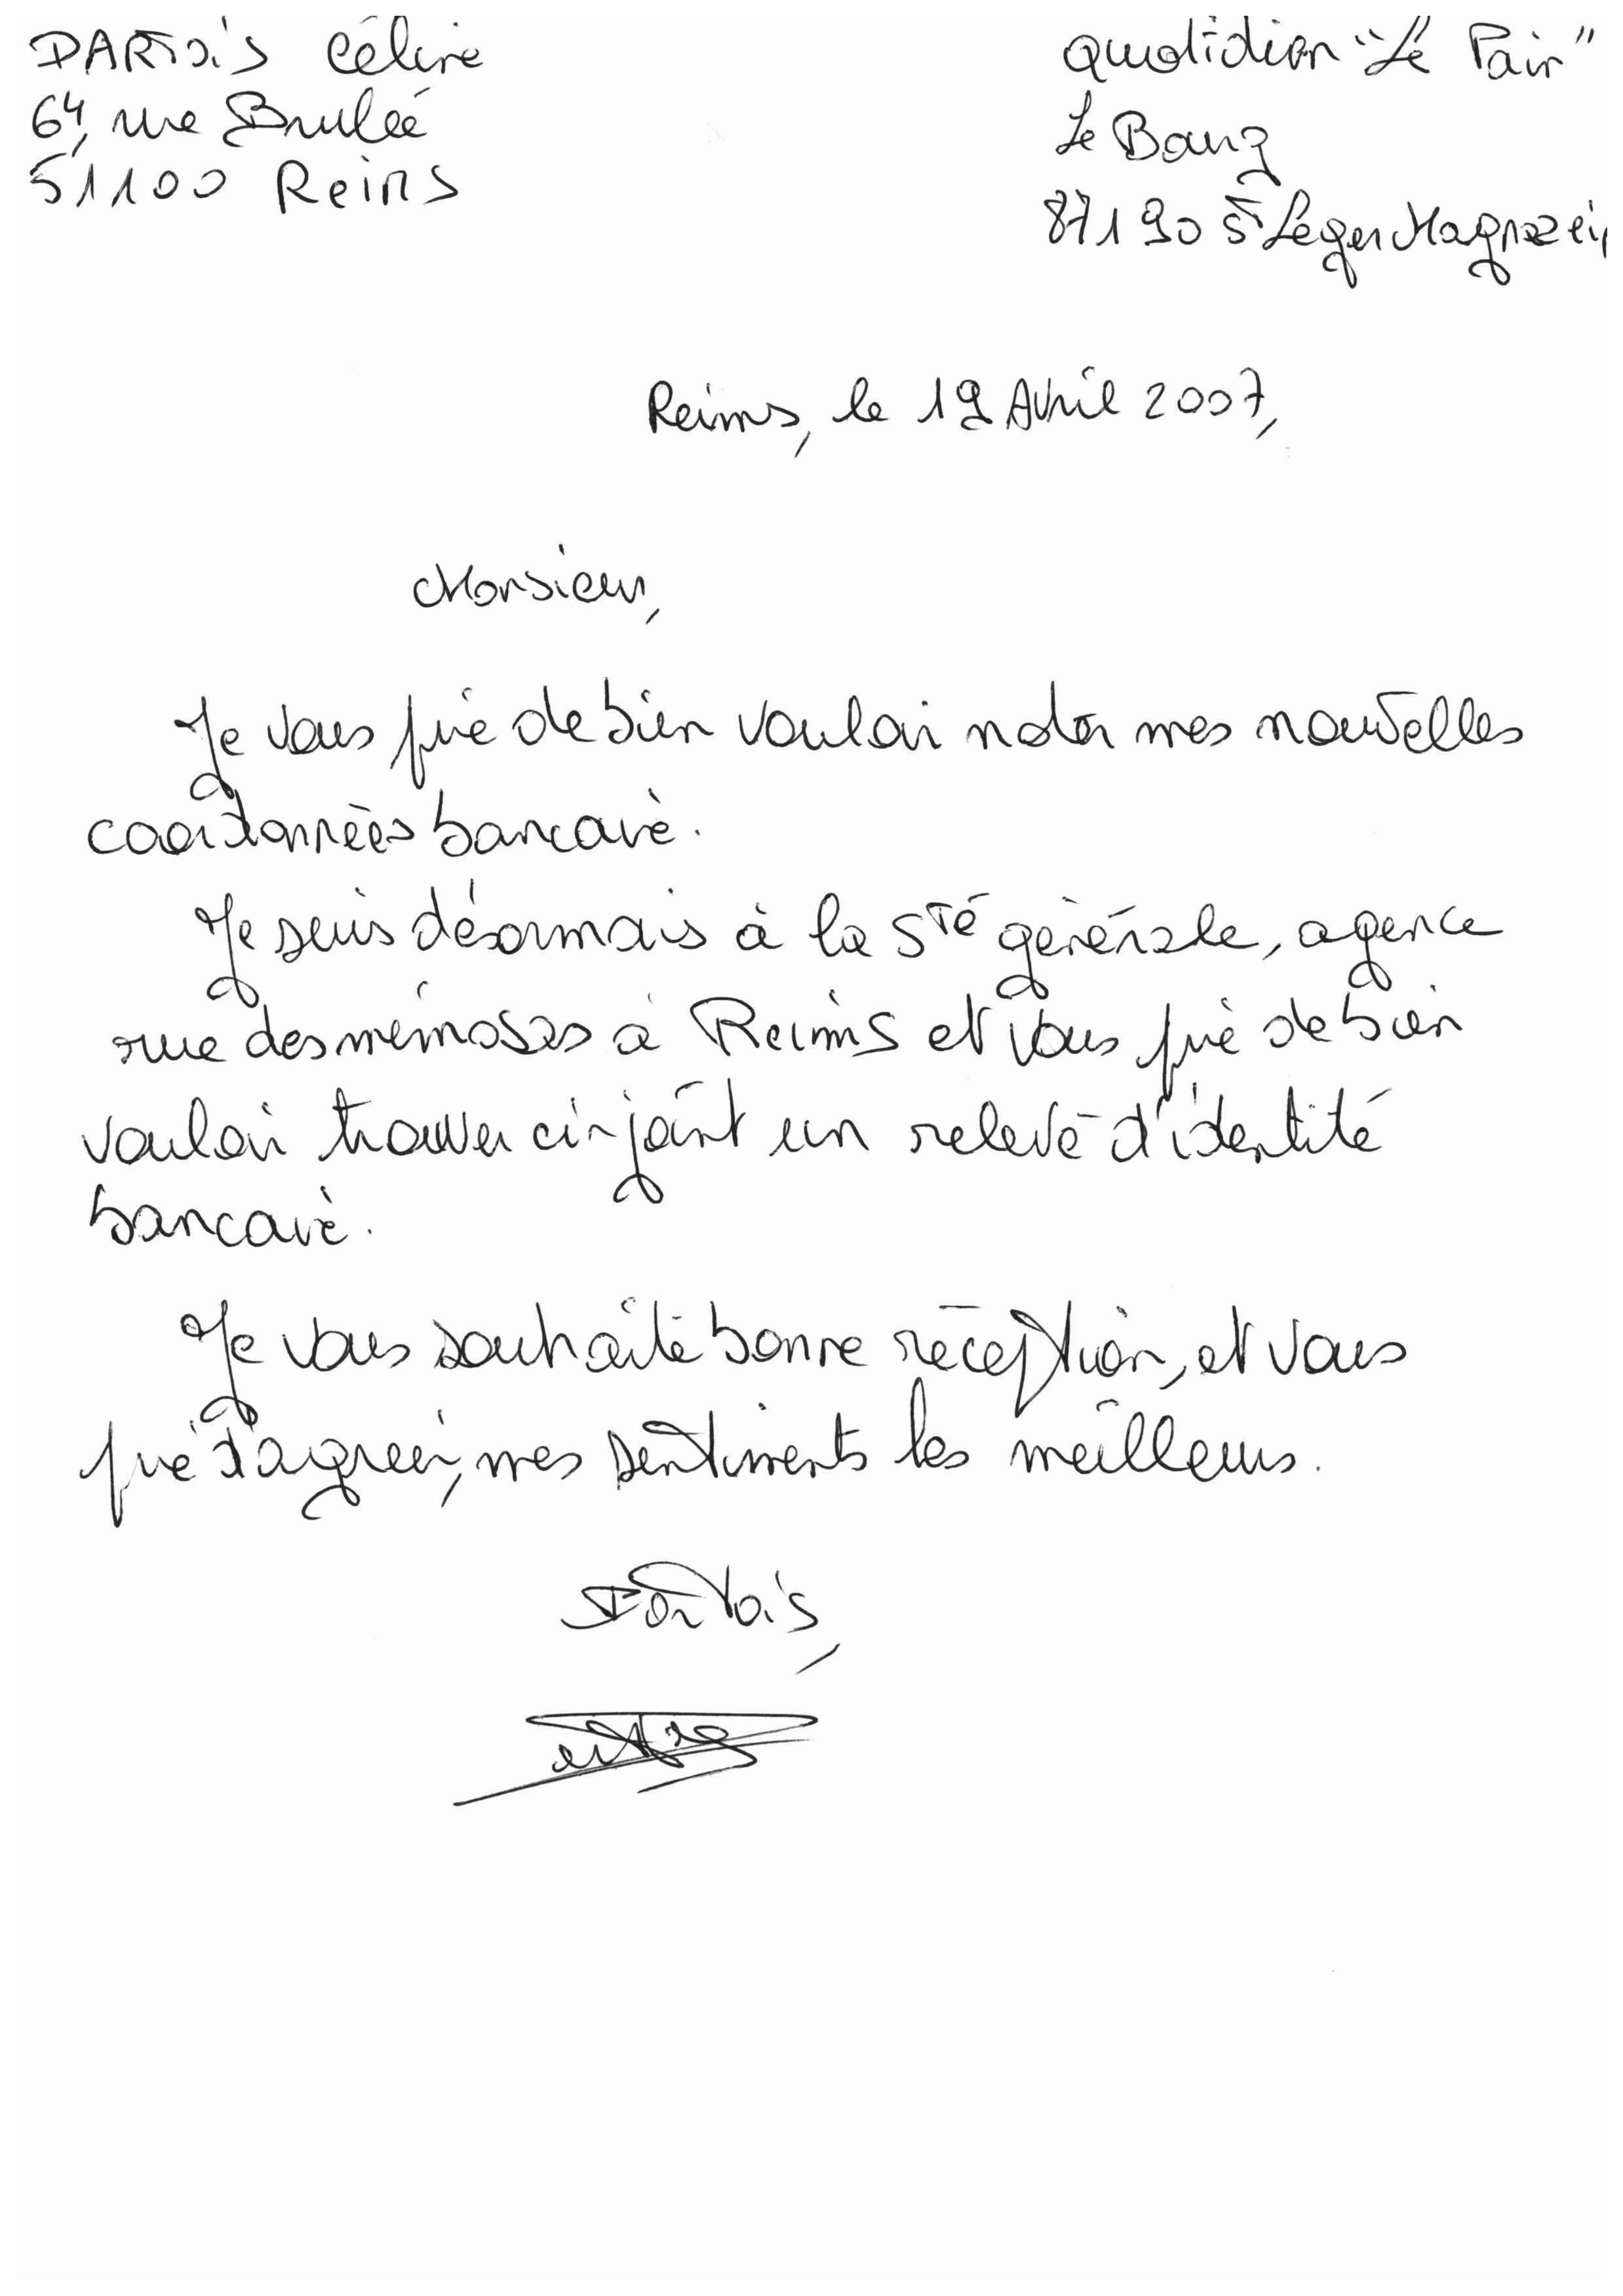 DARTOIS Céline
64, rue Brulée
51100 Reims
Quotidien "Le Pain"
Le Bourg
87190 St Léger Magnazeix
Reims, le 19 Avril 2007,
Monsieur,
Je vous prie de bien vouloir noter mes nouvelles
coordonnées bancaire.
Je suis désormais à la Sté générale, agence
rue des mimosas à Reims et vous prie de bien
vouloir trouver ci-joint un relevé d'identité
bancaire.
Je vous souhaite bonne réception, et vous
prie d'agréer, mes sentiments les meilleurs.
Dartois,